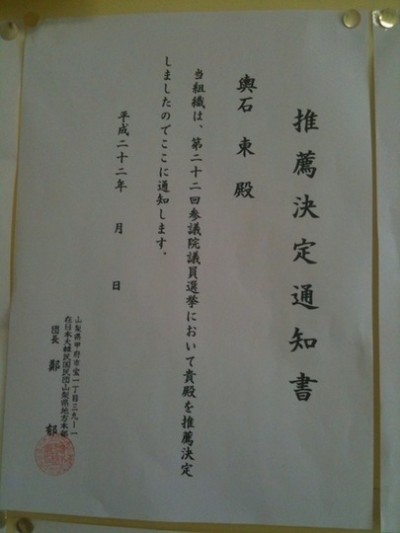 推薦決定通知書
輿石 東 殿
当組織は、第二十二回参議院議員選挙において貴殿を推薦決定
しましたのでここに通知します。
平成二十二年 月 日
山梨県甲府市宝一丁目三九ー一
在日本大韓民国民団山梨県地方本部
団長 鄭